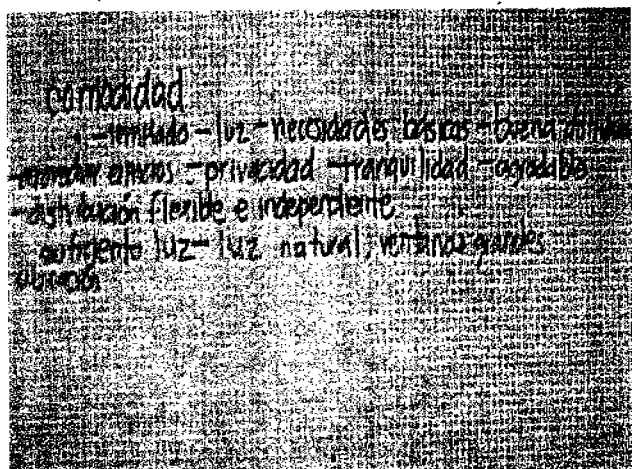 comodidad
luz - necesidades básicas - buena
- privacidad - tranquilidad - agradable
- distribución flexible e independiente
suficiente luz - luz natural, ventanas grandes
ubicación